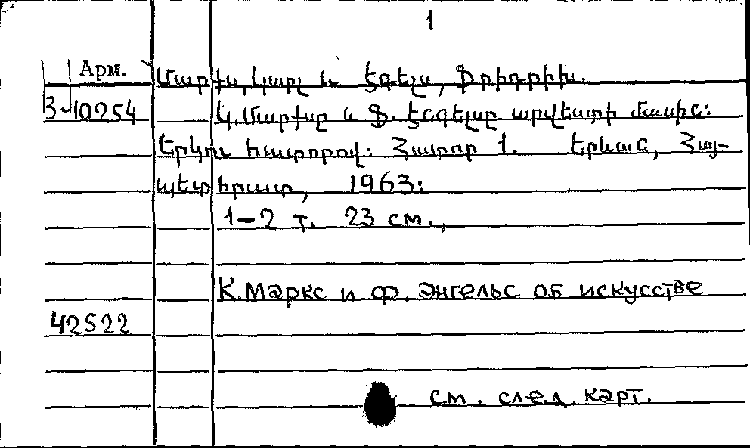 1
Арм. Մարքս, Կարլ և Էնգելս, Ֆրիդրիխ.
3-10254 Կ. Մարքսը և Ֆ. Էնգելսը արվեստի մասին:
Երկու հատորով: Հատոր 1. Երևան, Հայ-
պետհրատ, 1963:
1-2 т. 23 см.,
К. Маркс и Ф. Энгельс об искусстве
42522
см. след. карт.